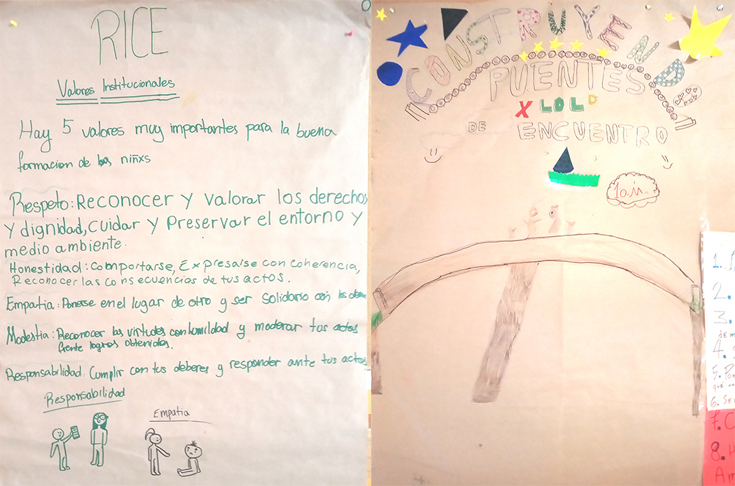 RICE
Valores Institucionales
Hay 5 valores muy importantes para la buena
formacion de los niñxs
Respeto: Reconocer y valorar los derechos
y dignidad, cuidar y Preservar el entorno y
medio ambiente.
Honestidad: Comportarse, Expresarse con Coherencia,
Reconocer las consecuencias de tus actos.
Empatia: Ponerse en el lugar de otro y ser solidario con los
Modestia: Reconocer las virtudes con humildad y moderar tus actos
frente logros obtenidos.
Responsabilidad: Cumplir con tus deberes y responder ante tus actos
Responsabilidad
Empatia
CONSTRUYEND
PUENTES
X LOLO
DE ENCUENTRO
1.
2.
3.
4.
5.
6.
7.
8.